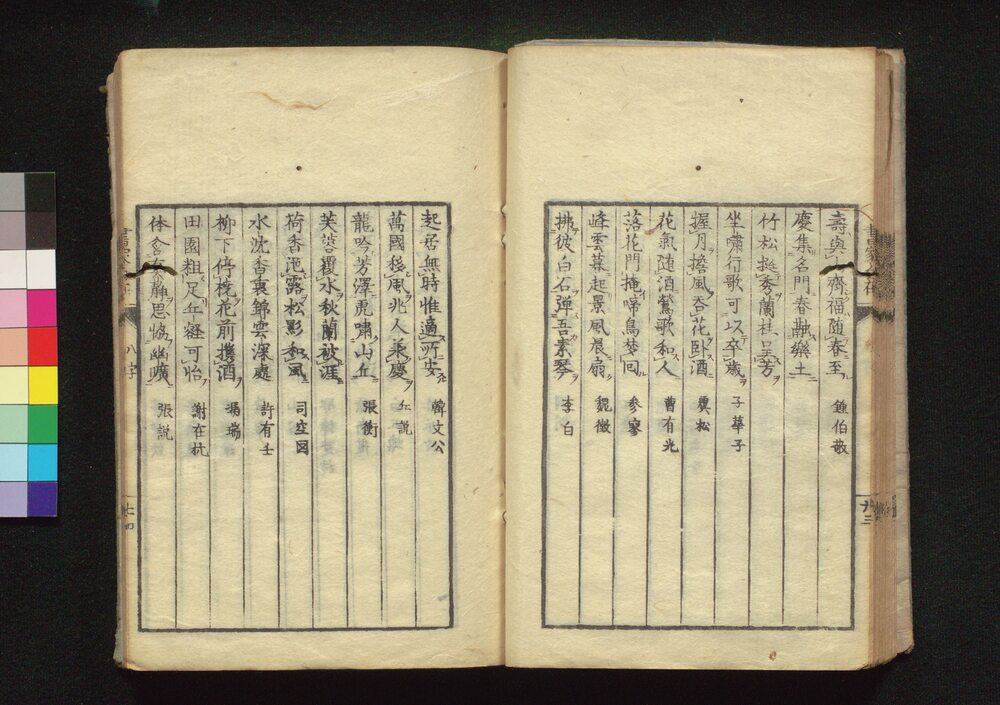 壽與山齊福随春至 鍾伯敬
慶集名門春融樂土
竹松挺秀蘭桂呈芳
坐嘯行歌可以卒歳 子華子
握月擔風吞花卧酒 虞松
花氣随酒鶯歌和人 曹有光
落花門掩啼鳥夢回 参寥
峰雲暮起景風晨扇 魏徴
拂彼白石彈吾素琴 李白
起居無時惟適所安 韓文公
萬國移風兆人乗慶 丘説
龍吟芳澤虎嘯山丘 張衡
芙蓉覆水秋蘭被涯
荷香浥露松影和風 司空図
水沈香裏錦雲深處 許有壬
柳下停橈花前携酒 馮瑞
田園粗足丘壑可怡 謝在杭
体含安静思協幽曠 張説
八字